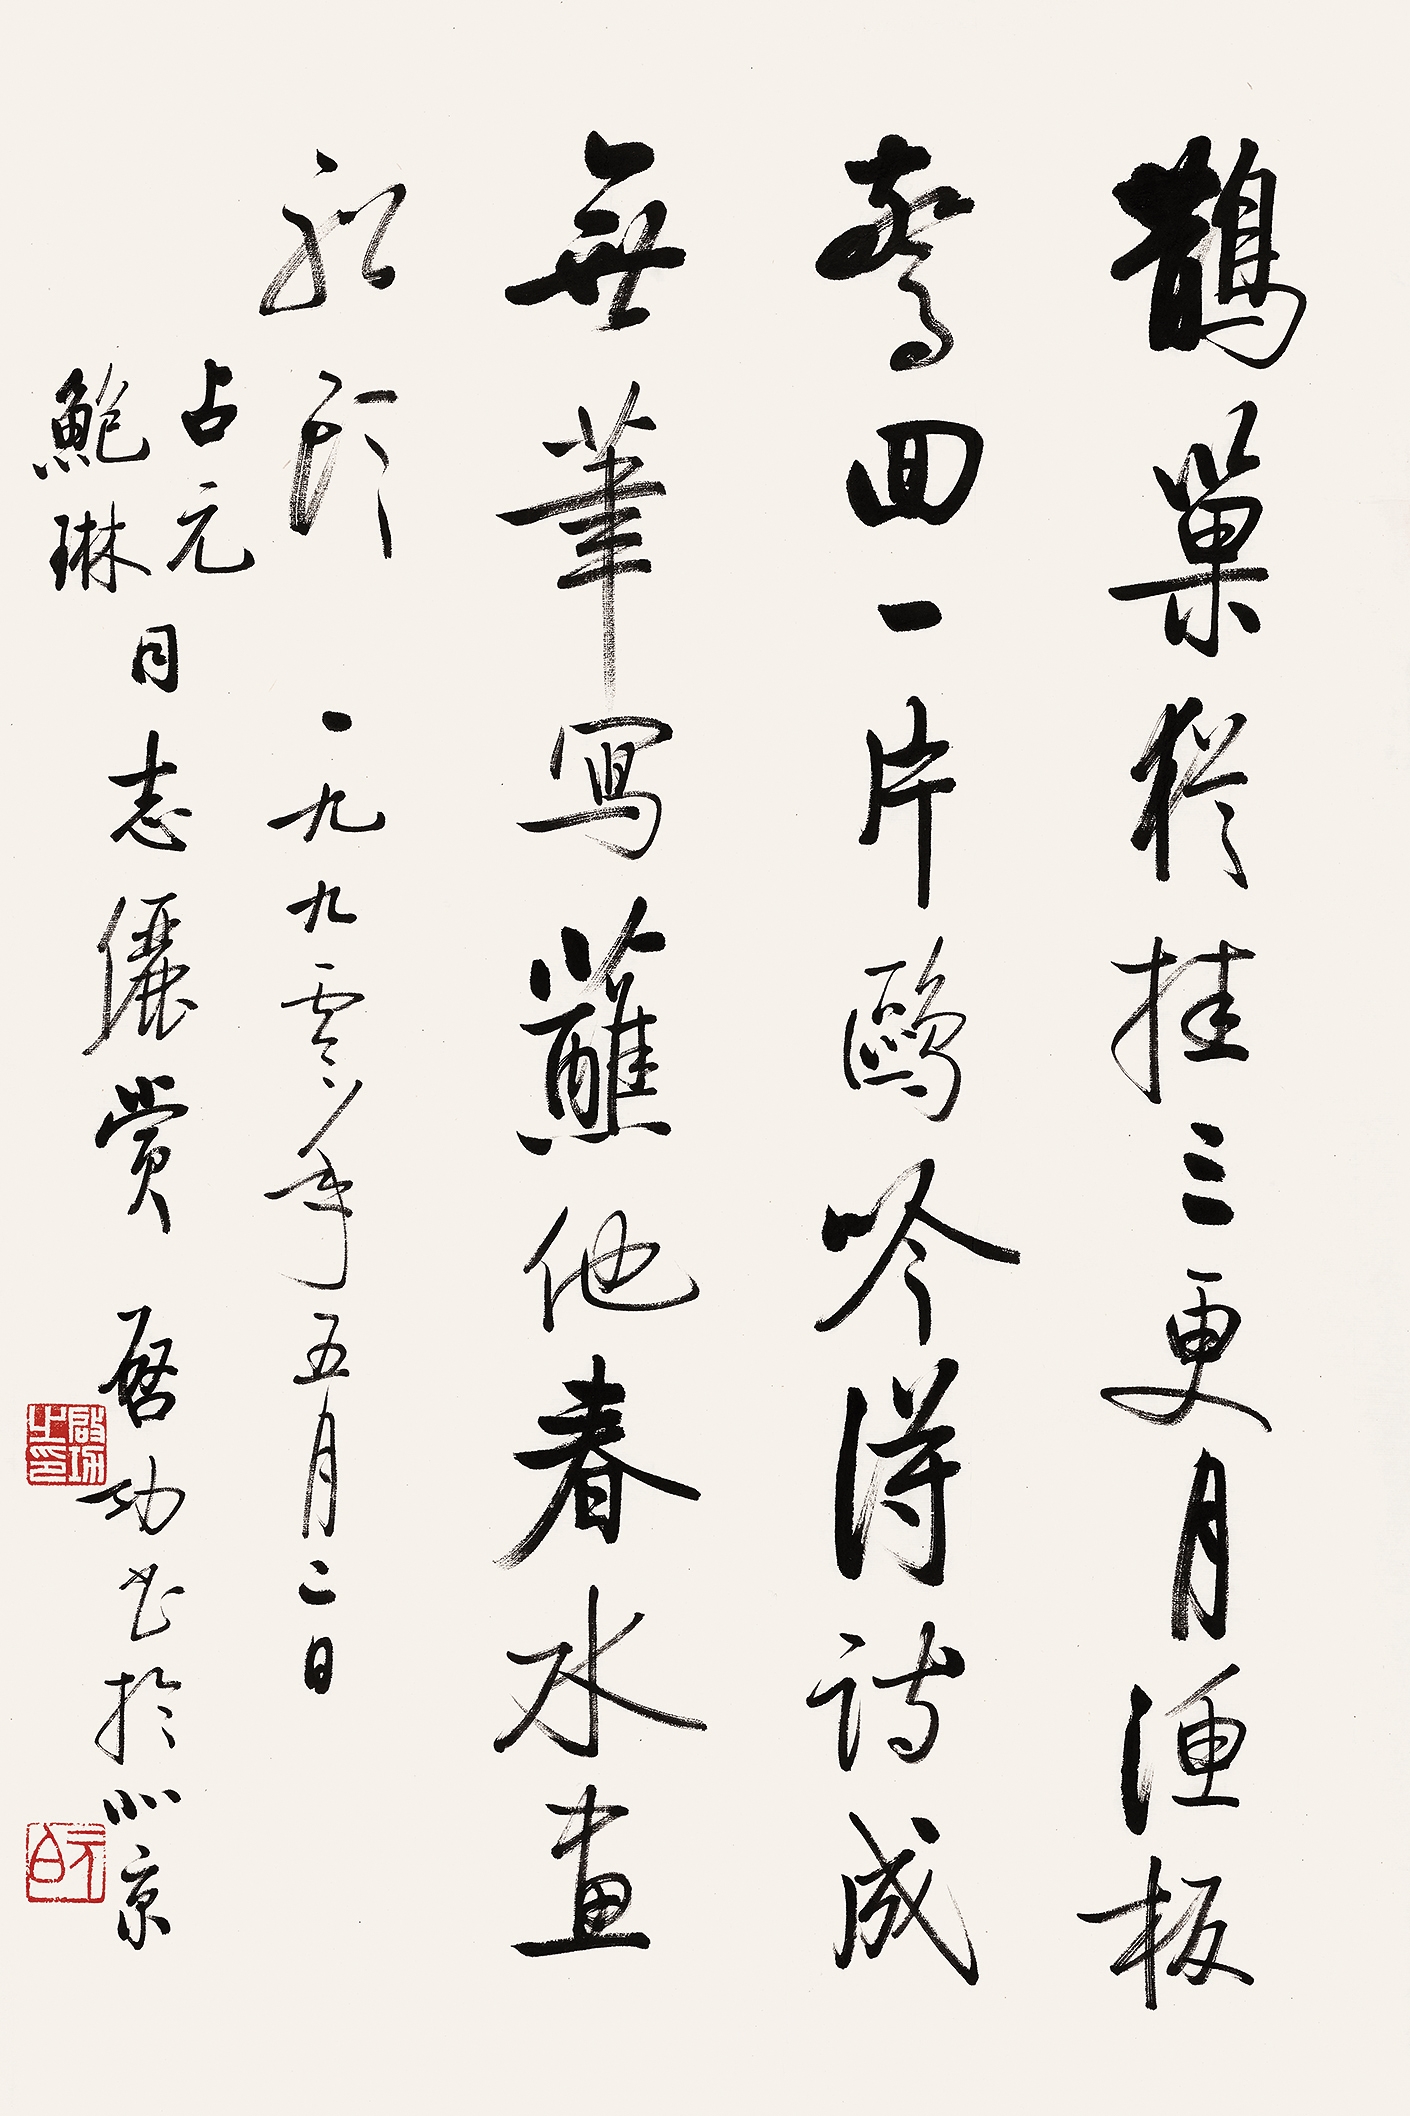 鵲巢猶挂三更月漁板
驚回一片鷗吟得詩成
無筆寫蘸他春水畫
船頭 一九九零年五月二日
占元
鮑琳
同志儷賞 啓功書於北京
啟功之印
元白